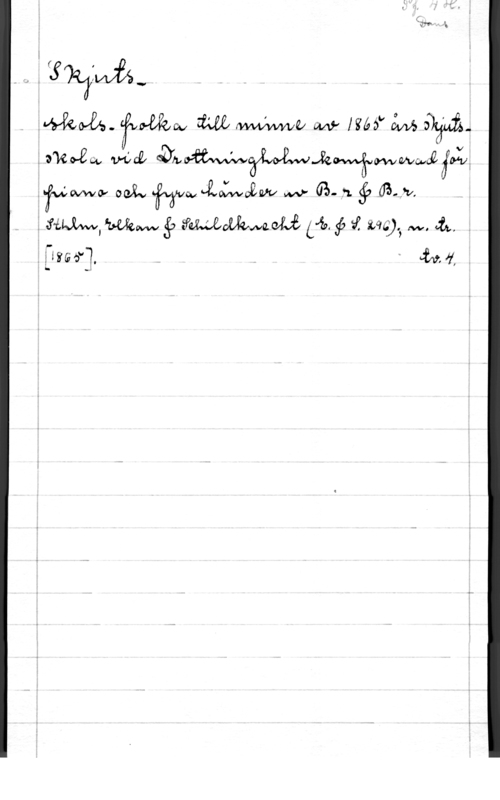 Pf. 4 H.
Dans
Skjuts-
-skols-polka till minne av 1865 års Skjuts-
skola vid Drottningholm komponerad för
piano och fyra händer av B-r & B-r.
Sthlm, Elkan & Schildknecht (E. & S. 296), m. tr.
[1865]. tv. 4.